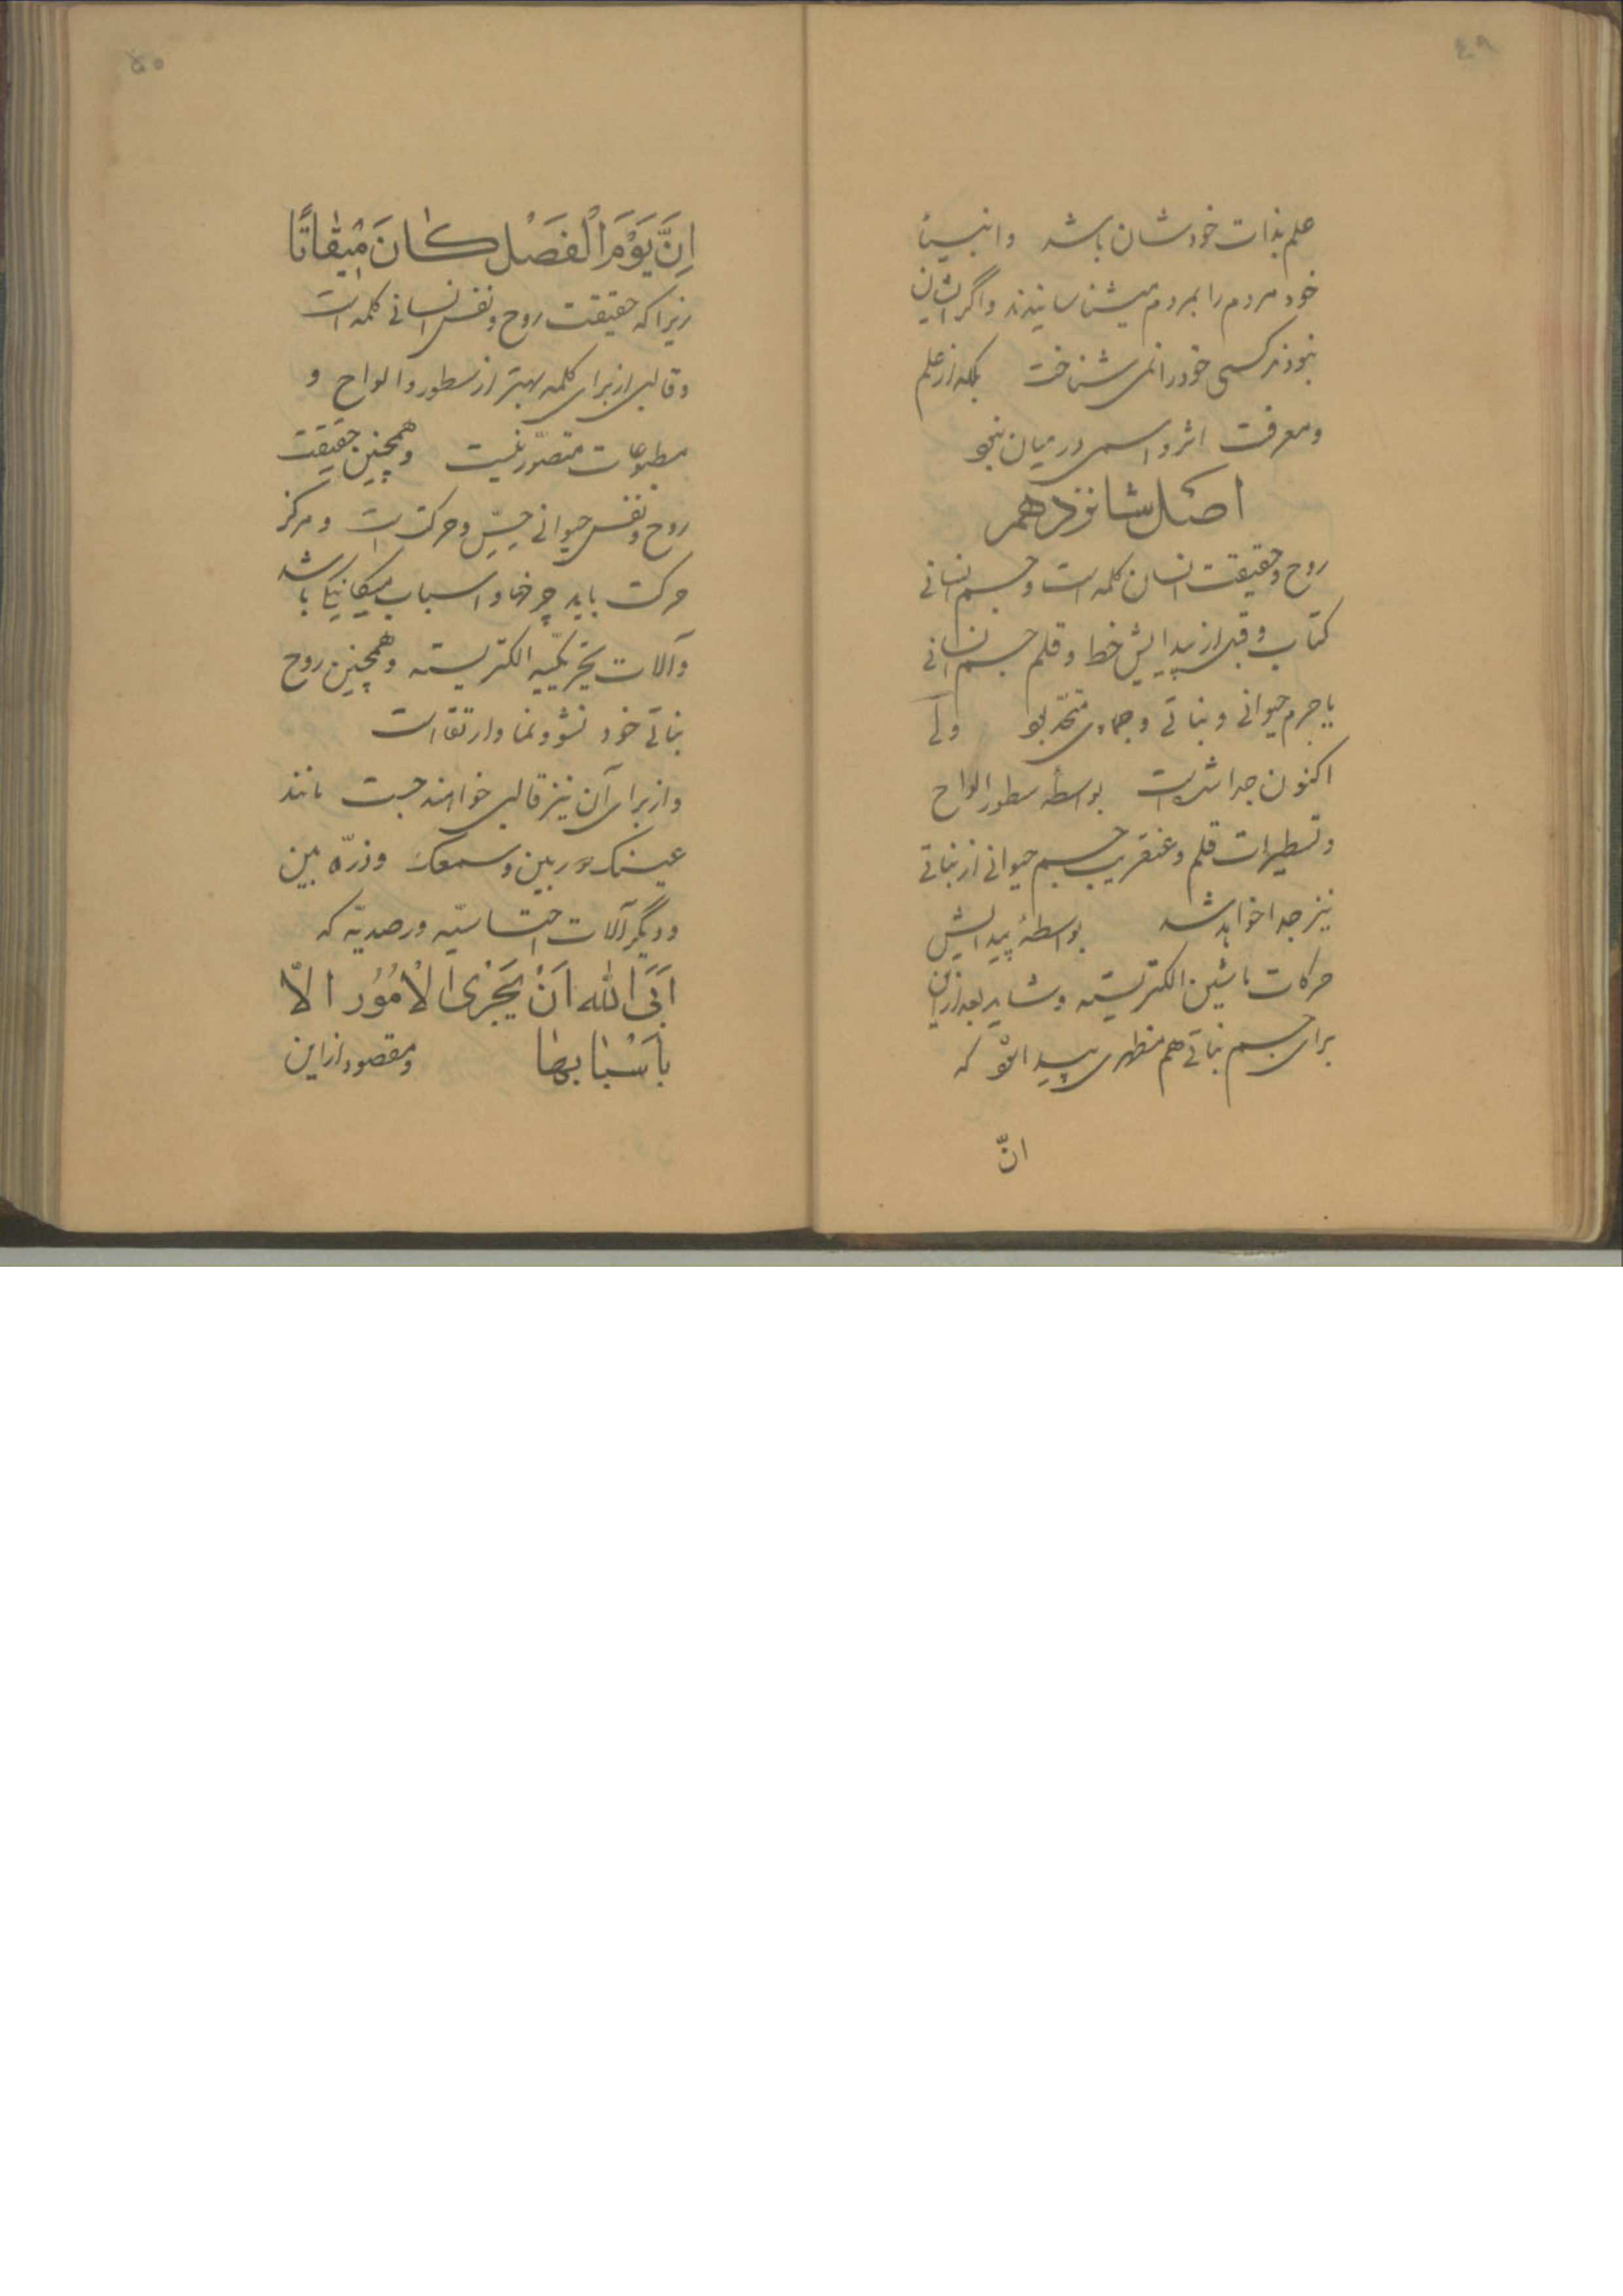 ٤٩
علم بذات خودشان باشد وانبیا
خود مردم را بمردم میشناسانیدند واگر ایشان
نبودند کسی خود را نمی شناخت بلکه از علم
ومعرفت اثر و اسمی در میان نبود
اصل شانزدهم
روح وحقیقت انسان کلمه است وجسم انسانی
کتاب وقبل از پیدایش خط وقلم جسم انسانی
با جرم حیوانی ونباتی وجمادی متحد بود ولی
اکنون جدا شده است بواسطه سطور الواح
وتسطیرات قلم وعنقریب جسم حیوانی از نباتی
نیز جدا خواهد شد بواسطهٔ پیدایش
حرکات ماشین الکتریسته وشاید بعد از این
برای جسم نباتی هم مظهری پیدا شود که
انّ
۵۰
اِنَّ يَوْمَ الْفَصْلِ كٰانَ مٖيقٰاتًا
زیرا که حقیقت روح ونفس انسانی کلمه است
وقالبی از برای کلمه بهتر از سطور والواح و
مطبوعات متصوّر نیست وهمچنین حقیقت
روح ونفس حیوانی حسّ وحرکت است ومرکز
حرکت باید چرخها واسباب میکانیکا باشد
وآلات تحریکیّه الکتریسته وهمچنین روح
نباتی خود نشوونما وارتقا است
واز برای آن نیز قالبی خواهند جست مانند
عینک ودوربین وسمعک وذرّه بین
ودیگر آلات احتساسیّه ورصدیّه که
اَبَى اللّٰه اَنْ يَجْرٰى الْاُمُوُر الاّ
بِاَسْبٰابِهٰا ومقصود از این